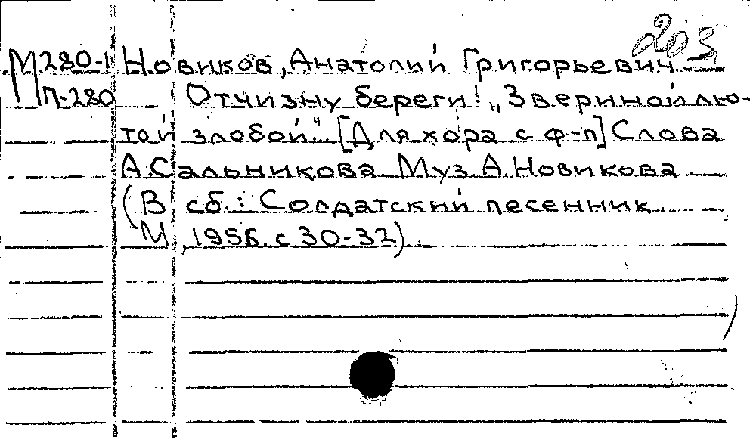 203
М280-1 Новиков, Анатолий Григорьевич
П-280 Отчизну береги! „Звериной лю-
той злобой“ [Для хора с ф-п] Слова
А Сальникова Муз А. Новикова
(В сб.: Солдатский песенник
М, 1956. с 30-32)